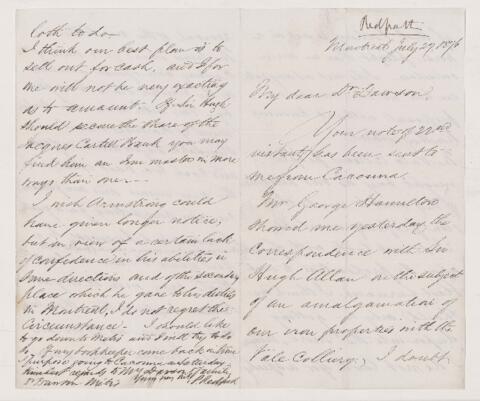 Redpath
Montreal July 29, 1876
My dear Dr Dawson,
Your note of 22nd
instant has been sent to
me from Cacouna.
Mr George Hamilton
showed me yesterday the
correspondence with Sir
Hugh Allan on the subject
of an amalgamation of
our iron properties with the
Vale Colliery. I doubt
loth to do
I think our best plan is to
sell out for cash, and I for
me will not be very exacting
as to amount. If Sir Hugh
should secure the share of the
you may
find him an in more
ways than one.
I wish Armstrong could
have given longer notice;
but in view of a certain lack
of confidence in his abilities in
some directions and of the secondary
place which he gave to his duties
in Montreal, I do not regret the
circumstance. I should like
to go down to Metis and must try to do
so. If my bookkeeper come back in time
I purpose going to Cacouna
kindest regards to Mrs Dawson & family
Dr Dawson Metis Yours very truly P Redpath